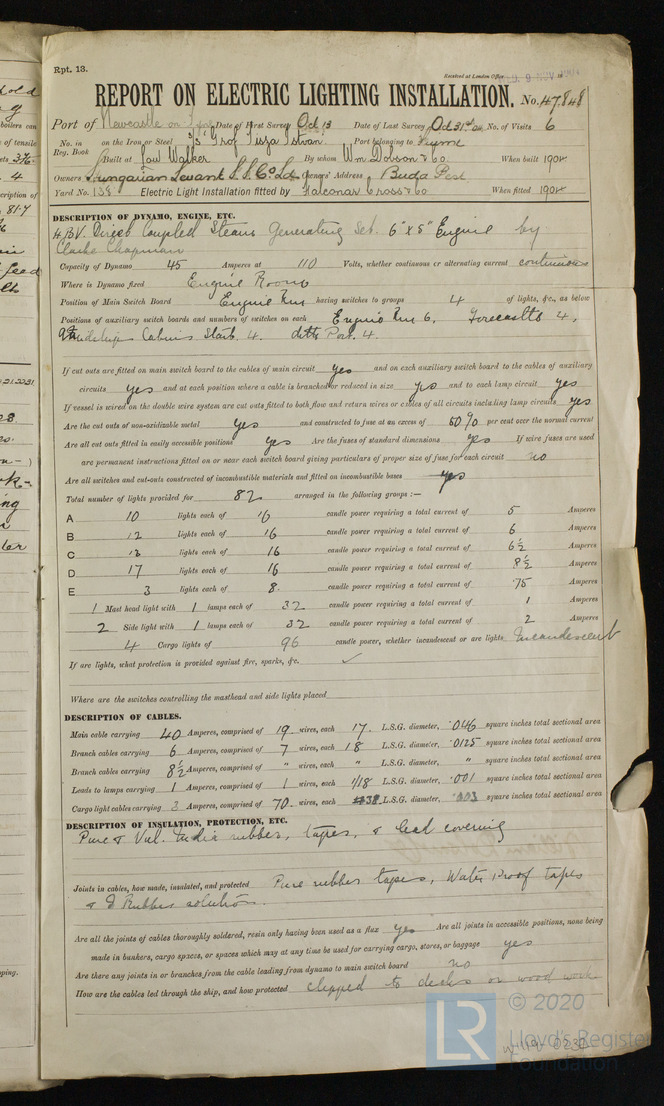 Rpt. 13.
Received at London Office WED. 9 NOV 1904
REPORT ON ELECTRIC LIGHTING INSTALLATION. No. 47,848
Port of Newcastle on Tyne Date of First Survey Oct 13 Date of Last Survey Oct 31st 04 No. of Visits 6
No. in Reg. Book on the Iron or Steel S/S "Grof Tisza Istvan" Port belonging to Fiume
Built at Low Walker By whom Wm Dobson & Co. When built 1904
Owners Hungarian Levant S.S. Co Ld Owners' Address Buda Pest
Yard No. 138 Electric Light Installation fitted by Falconar Cross & Co When fitted 1904
DESCRIPTION OF DYNAMO, ENGINE, ETC.
Direct Coupled Steam Generating Set. 6" x 5" Engine by
Clarke Chapman
Capacity of Dynamo 45 Amperes at 110 Volts, whether continuous or alternating current continuous
Where is Dynamo fixed Engine Room
Position of Main Switch Board Engine Rm having switches to groups 4 of lights, &c., as below
Positions of auxiliary switch boards and numbers of switches on each Engine Rm 6, Forecastle 4,
Midships Cabins Starb. 4. ditto Port. 4.
If cut outs are fitted on main switch board to the cables of main circuit yes and on each auxiliary switch board to the cables of auxiliary
circuits yes and at each position where a cable is branched or reduced in size yes and to each lamp circuit yes
If vessel is wired on the double wire system are cut outs fitted to both flow and return wires or cables of all circuits including lamp circuits yes
Are the cut outs of non-oxidizable metal yes and constructed to fuse at an excess of 50% per cent over the normal current
Are all cut outs fitted in easily accessible positions yes Are the fuses of standard dimensions yes If wire fuses are used
are permanent instructions fitted on or near each switch board giving particulars of proper size of fuse for each circuit no
Are all switches and cut-outs constructed of incombustible materials and fitted on incombustible bases yes
Total number of lights provided for 82 arranged in the following groups :—
A 10 lights each of 16 candle power requiring a total current of 5 Amperes
B 12 lights each of 16 candle power requiring a total current of 6 Amperes
C 13 lights each of 16 candle power requiring a total current of 6½ Amperes
D 17 lights each of 16 candle power requiring a total current of 8½ Amperes
E 3 lights each of 8 candle power requiring a total current of 75 Amperes
1 Mast head light with 1 lamps each of 32 candle power requiring a total current of 1 Amperes
2 Side light with 1 lamps each of 32 candle power requiring a total current of 2 Amperes
4 Cargo lights of 96 candle power, whether incandescent or arc lights Incandescent
If arc lights, what protection is provided against fire, sparks, &c. ✓
Where are the switches controlling the masthead and side lights placed
DESCRIPTION OF CABLES.
Main cable carrying 40 Amperes, comprised of 19 wires, each 17 L.S.G. diameter, ·046 square inches total sectional area
Branch cables carrying 6 Amperes, comprised of 7 wires, each 18 L.S.G. diameter, ·0125 square inches total sectional area
Branch cables carrying 8½ Amperes, comprised of " wires, each " L.S.G. diameter, " square inches total sectional area
Leads to lamps carrying 1 Amperes, comprised of 1 wires, each 1/18 L.S.G. diameter, ·001 square inches total sectional area
Cargo light cables carrying 3 Amperes, comprised of 70 wires, each 38 L.S.G. diameter, ·003 square inches total sectional area
DESCRIPTION OF INSULATION, PROTECTION, ETC.
Pure & Vul. India rubber, tapes, & lead covering
Joints in cables, how made, insulated, and protected Pure rubber tapes, Water Proof tapes
& I Rubber solution.
Are all the joints of cables thoroughly soldered, resin only having been used as a flux yes Are all joints in accessible positions, none being
made in bunkers, cargo spaces, or spaces which may at any time be used for carrying cargo, stores, or baggage yes
Are there any joints in or branches from the cable leading from dynamo to main switch board no
How are the cables led through the ship, and how protected clipped to decks or wood work
LR © 2020
Lloyd's Register
Foundation
W1119-0232